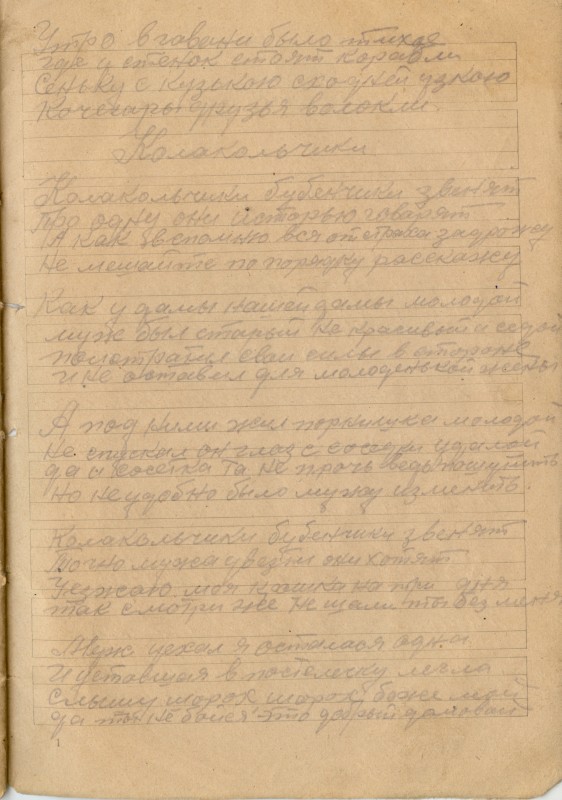 Утро в гавани было тихое
где у стенок стоят корабли
Сеньку с Кузькою сходней узкою
Кочегары друзья волокли.
Колакольчики
Колакольчики бубенчики звенят
Про одну они историю говорят
А как вспомню вся от страха задрожу
Не мешайте по порядку расскажу
Как у дамы нашей дамы молодой
муж был старый не красивый и седой
свои силы в
и не оставил для молоденькой жены
А под ними жил парнишка молодой
Не спускал он глаз с соседки удалой
да и соседка та не прочь ведь пошутить
Но неудобно было мужу изменить.
Колакольчики бубенчики звенят
Точно мужа уверти они хотят
Уезжаю моя крошка на три дня
так смотри же не шали ты без меня
Муж уехал я осталася одна
И уставшая в постелечку легла
Слышу шорох шорох боже мой
да ты не бойся это добрый домовой